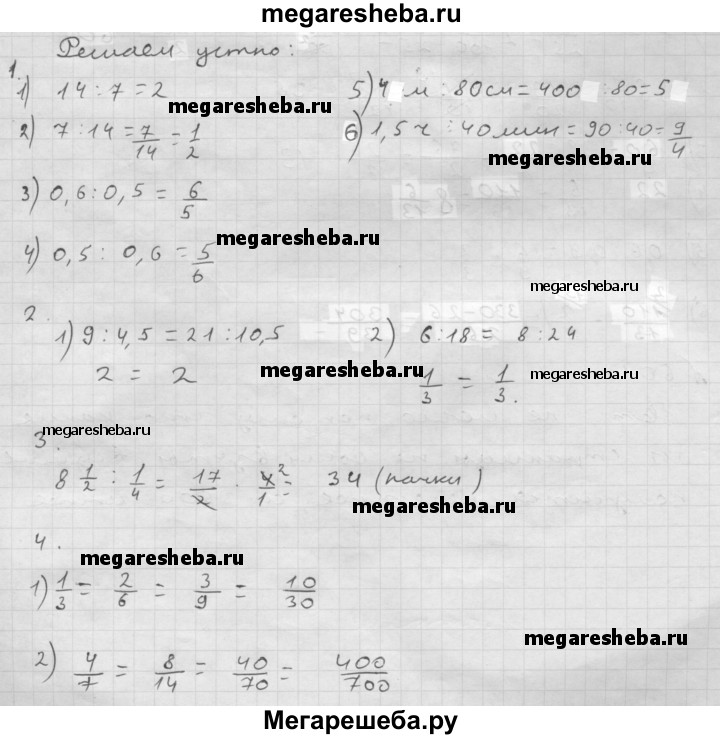 megaresheba.ru
Решаем устно:
1.
1) 14 : 7 = 2
megaresheba.ru
2) 7 : 14 = 7/14 = 1/2
3) 0,6 : 0,5 = 6/5
4) 0,5 : 0,6 = 5/6
megaresheba.ru
5) 4 м : 80см = 400 : 80 = 5
6) 1,5 ч : 40 мин = 90 : 40 = 9/4
megaresheba.ru
megaresheba.ru
2.
1) 9 : 4,5 = 21 : 10,5
2 = 2
megaresheba.ru
2) 6 : 18 = 8 : 24
1/3 = 1/3.
megaresheba.ru
3.
megaresheba.ru
8 1/2 : 1/4 = 17/2 · 4²/1 = 34 (пачки)
megaresheba.ru
4.
megaresheba.ru
1) 1/3 = 2/6 = 3/9 = 10/30
megaresheba.ru
2) 4/7 = 8/14 = 40/70 = 400/700
Мегарешеба.ру